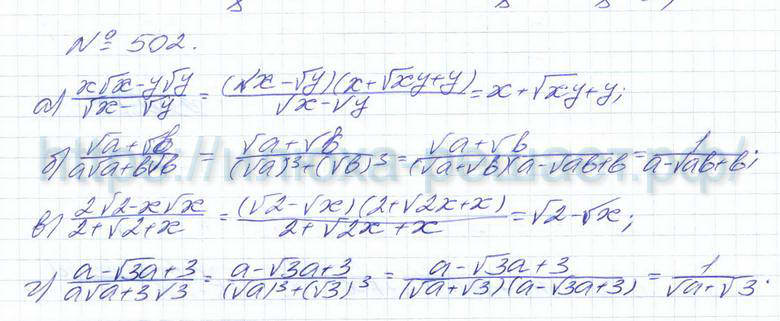 № 502.
а) (x√x-y√y)/(√x-√y) = ((√x-√y)(x+√xy+y))/(√x-√y) = x+√xy+y;
б) (√a+√b)/(a√a+b√b) = (√a+√b)/((√a)³+(√b)³) = (√a+√b)/((√a+√b)(a-√ab+b) = 1/(a-√ab+b);
в) (2√2-x√x)/(2+√2+x) = ((√2-√x)(2+√2x+x))/(2+√2x+x) = √2-√x;
г) (a-√3a+3)/(a√a+3√3) = (a-√3a+3)/((√a)³+(√3)³) = (a-√3a+3)/((√a+√3)(a-√3a+3)) = 1/(√a+√3).